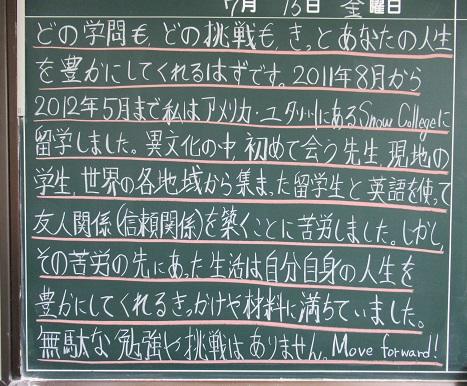 7月 15日 金曜日
どの学問も，どの挑戦も，きっとあなたの人生
を豊かにしてくれるはずです。2011年8月から
2012年5月まで私はアメリカ・ユタ州にあるSnow Collegeに
留学しました。異文化の中，初めて会う先生，現地の
学生，世界の各地域から集まった留学生と英語を使って
友人関係(信頼関係)を築くことに苦労しました。しかし，
その苦労の先にあった生活は自分自身の人生を
豊かにしてくれるきっかけや材料に満ちていました。
無駄な勉強や挑戦はありません。Move forward!